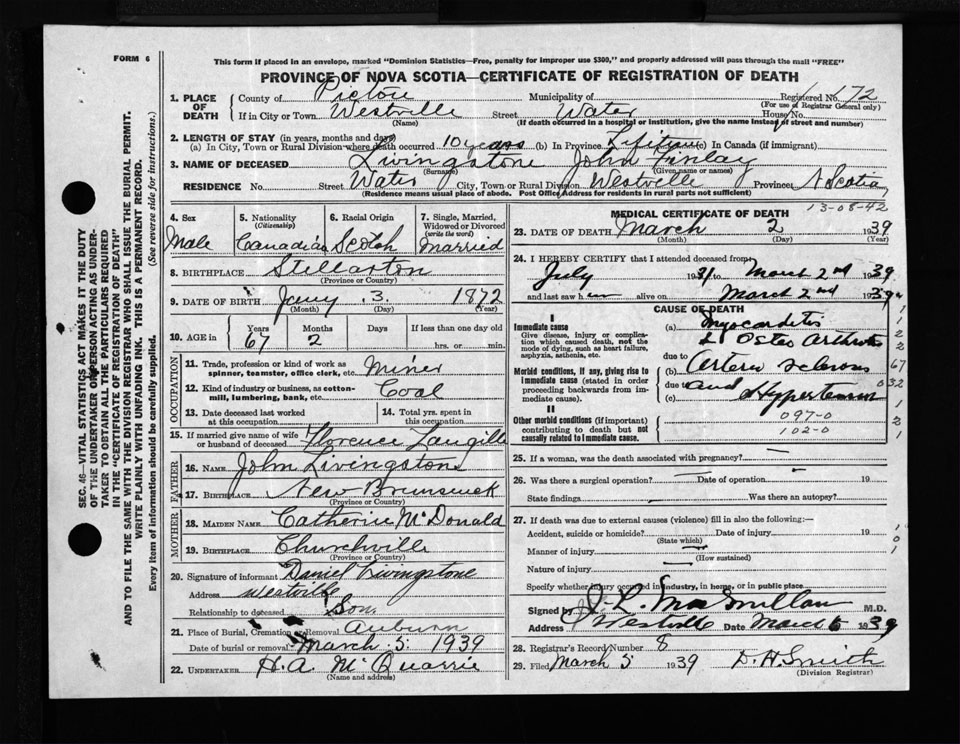 FORM 6
This form if placed in an envelope, marked "Dominion Statistics—Free, penalty for improper use $300," and properly addressed will pass through the mail "FREE"
PROVINCE OF NOVA SCOTIA—CERTIFICATE OF REGISTRATION OF DEATH
SEC. 46—VITAL STATISTICS ACT MAKES IT THE DUTY
OF THE UNDERTAKER OR PERSON ACTING AS UNDER-
TAKER TO OBTAIN ALL THE PARTICULARS REQUIRED
IN THE "CERTIFICATE OF REGISTRATION OF DEATH"
AND TO FILE THE SAME WITH THE DIVISION REGISTRAR WHO SHALL ISSUE THE BURIAL PERMIT.
WRITE PLAINLY WITH UNFADING INK. THIS IS A PERMANENT RECORD.
Every item of information should be carefully supplied. (See reverse side for instructions.)
1. PLACE OF DEATH County of Pictou Municipality of Registered No. 172
(For use of Registrar General only)
If in City or Town Westville Street Water House No.
(Name) (If death occurred in a hospital or institution, give the name instead of street and number)
2. LENGTH OF STAY (in years, months and days)
(a) In City, Town or Rural Division where death occurred 10 years (b) In Province Lifetime (c) In Canada (if immigrant)
3. NAME OF DECEASED Livingstone John Finlay
(Surname) (Given name or names)
RESIDENCE No. Street Water City, Town or Rural Division Westville Province N Scotia
(Residence means usual place of abode. Post Office Address for residents in rural parts not sufficient)
4. Sex Male
5. Nationality (Citizenship) Canadian
6. Racial Origin Scotch
7. Single, Married, Widowed or Divorced (write the word) Married
8. BIRTHPLACE Stellarton
(Province or Country)
9. DATE OF BIRTH Jany 3 1872
(Month) (Day) (Year)
10. AGE Years 67 Months 2 Days If less than one day old hrs. or min.
OCCUPATION
11. Trade, profession or kind of work as spinner, teamster, office clerk, etc. Miner
12. Kind of industry or business, as cotton-mill, lumbering, bank, etc. Coal
13. Date deceased last worked at this occupation
14. Total yrs. spent in this occupation
15. If married give name of wife or husband of deceased Florence Langille
FATHER
16. NAME John Livingstone
17. BIRTHPLACE New Brunswick
(Province or Country)
MOTHER
18. MAIDEN NAME Catherine McDonald
19. BIRTHPLACE Churchville
(Province or Country)
20. Signature of informant Daniel Livingstone
Address Westville
Relationship to deceased Son
21. Place of Burial, Cremation or Removal Auburn
Date of burial or removal March 5 1939
22. UNDERTAKER H. A. McQuarrie
(Name and address)
13-08-42
MEDICAL CERTIFICATE OF DEATH
23. DATE OF DEATH March 2 1939
(Month) (Day) (Year)
24. I HEREBY CERTIFY that I attended deceased from
July 1931 to March 2nd 1939
and last saw him alive on March 2nd 1939
CAUSE OF DEATH
I
Immediate cause
Give disease, injury or complication which caused death, not the mode of dying, such as heart failure, asphyxia, asthenia, etc.
(a) Myocarditis
Osteo Arthritis
due to
Morbid conditions, if any, giving rise to immediate cause (stated in order proceeding backwards from immediate cause).
(b) Arterio sclerosis
due to
(c) and Hypertension
II
Other morbid conditions (if important) contributing to death but not causally related to immediate cause.
097-0
102-0
1
2
2
67
032
1
2
25. If a woman, was the death associated with pregnancy?
26. Was there a surgical operation? Date of operation 19
State findings Was there an autopsy?
27. If death was due to external causes (violence) fill in also the following:—
Accident, suicide or homicide? Date of injury 19
(State which)
Manner of injury
(How sustained)
Nature of injury
Specify whether injury occurred in industry, in home, or in public place
1
0
1
Signed by MacMillan M.D.
Address Westville Date March 5 1939
28. Registrar's Record Number 8
29. Filed March 5 1939 D. H. Smith
(Division Registrar)